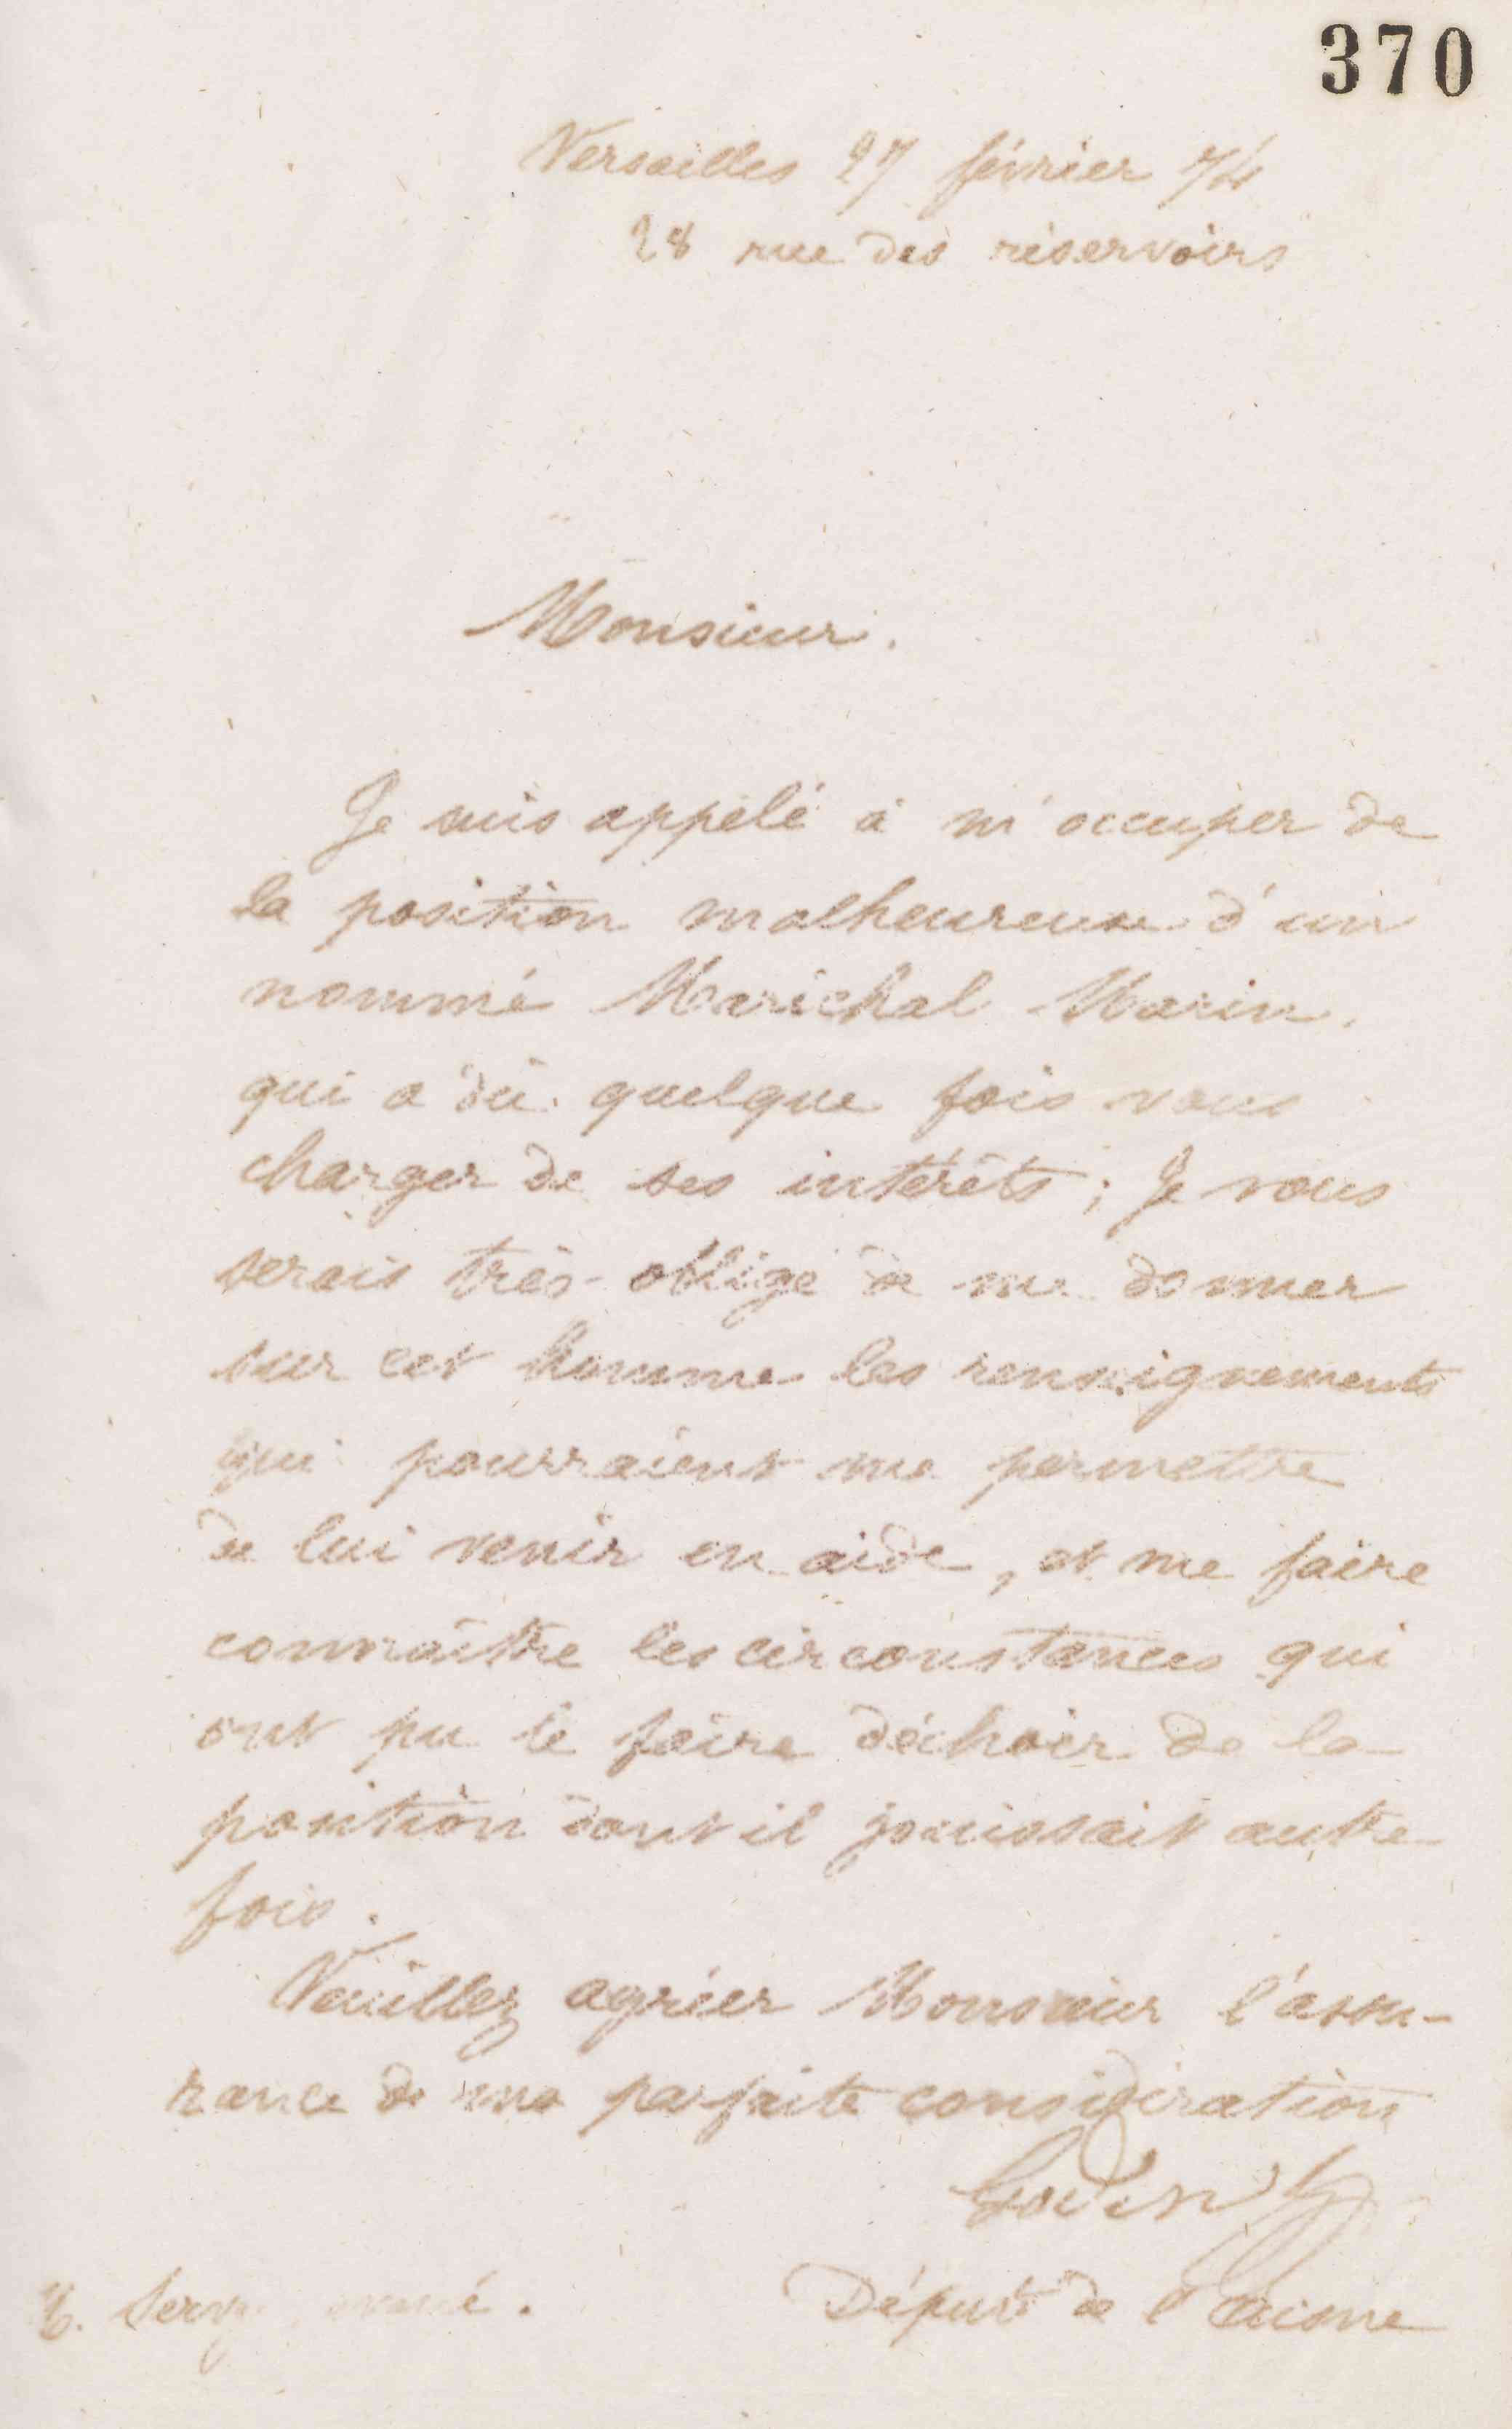 370
Versailles 27 février 74
28 rue des réservoirs
Monsieur.
Je suis appelé à m'occuper de
la position malheureuse d'un
nommé Maréchal Marin.
qui a dû quelque fois vous
charger de ses intérêts ; Je vous
serais très-obligé de me donner
sur cet homme les renseignements
qui pourraient me permettre
de lui venir en aide, et me faire
connaître les circonstances qui
ont pu le faire déchoir de la
position dont il jouissait autre
fois.
Veuillez agréer Monsieur l'assu-
rance de ma parfaite considération
Godin
Député de l'aisne
M.